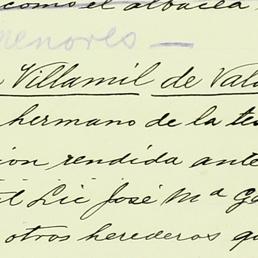 como el albacea
menores —
Villamil de Val
hermano de la tes
ión rendida ante
l Lic José Mª G
otros herederos q